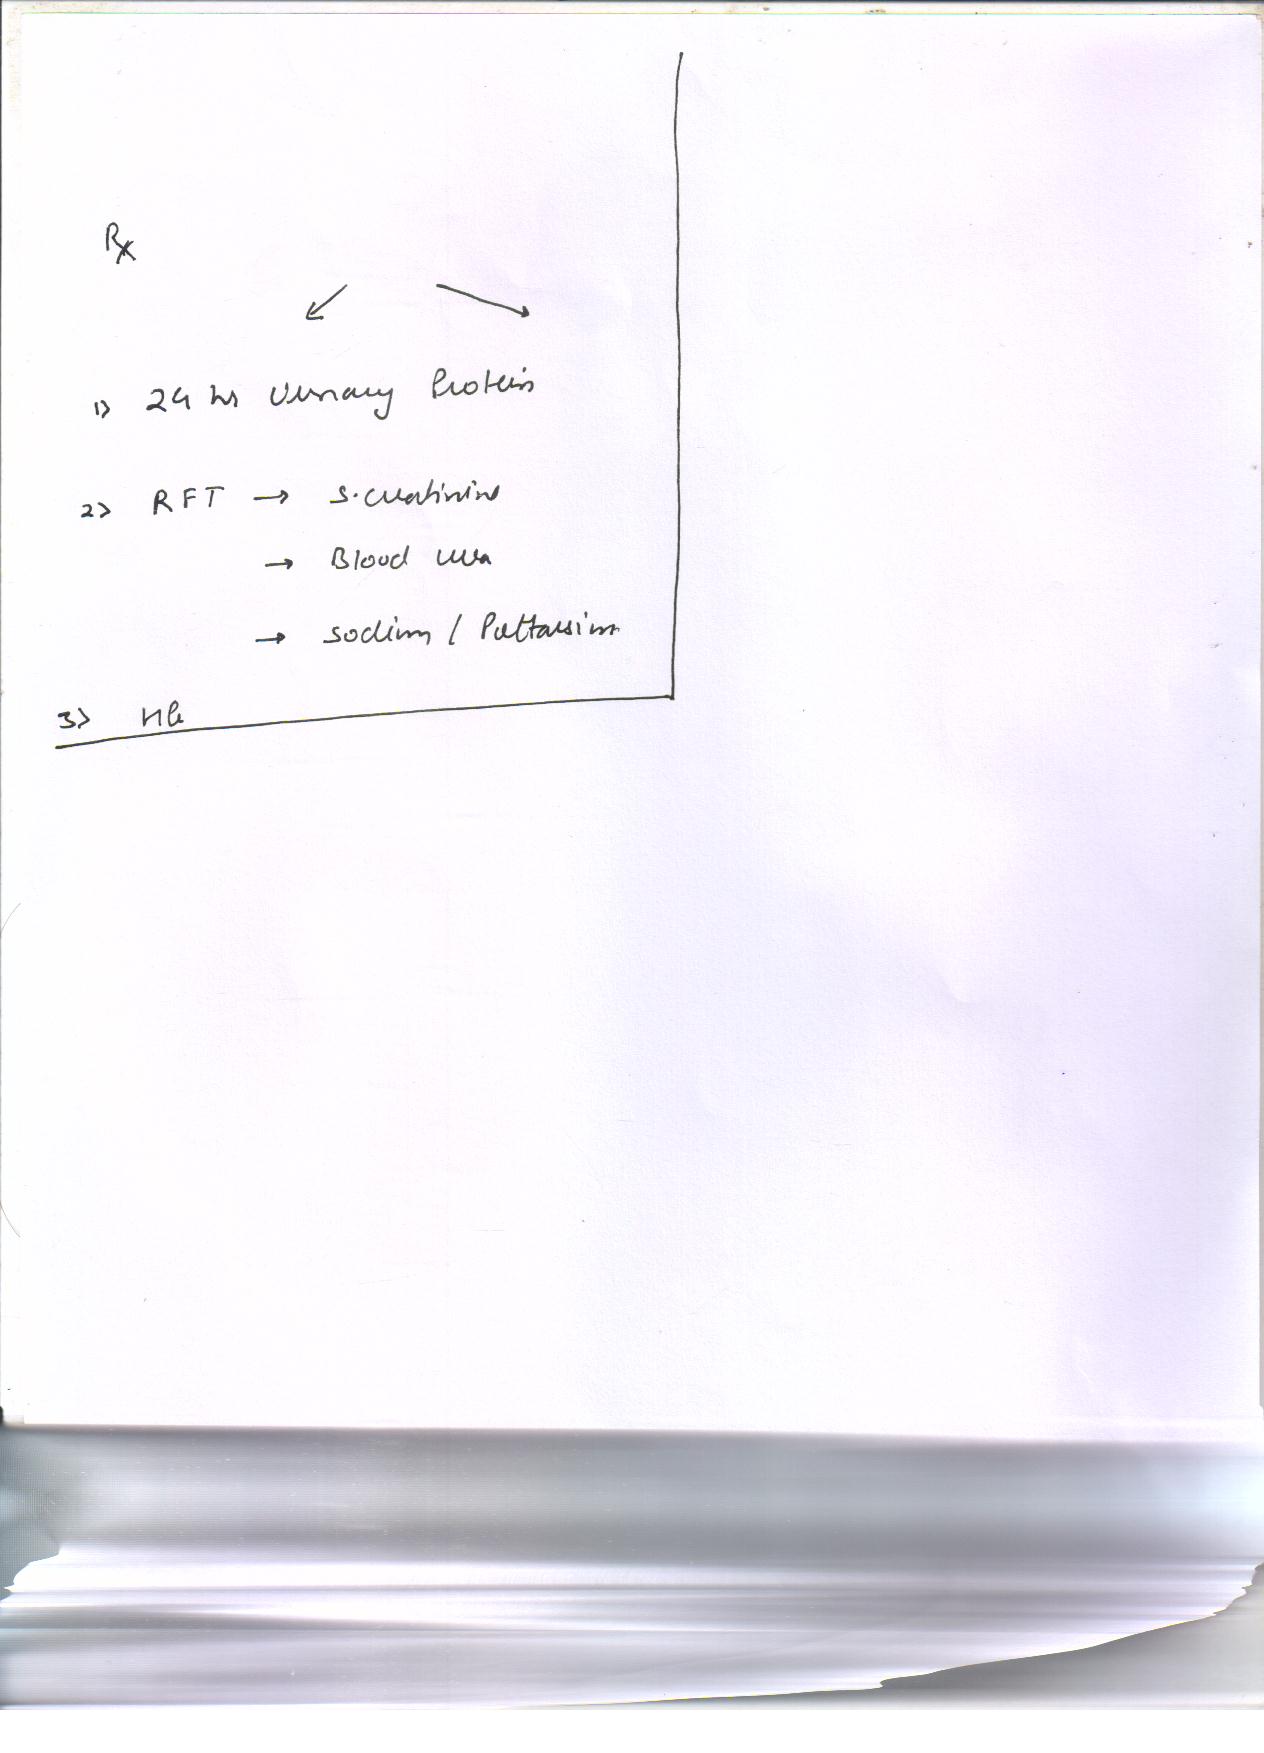 Rx
1) 24 hr Urinary Protein
2) RFT → S. creatinine
→ Blood urea
→ Sodium / Pottassium
3) Hb